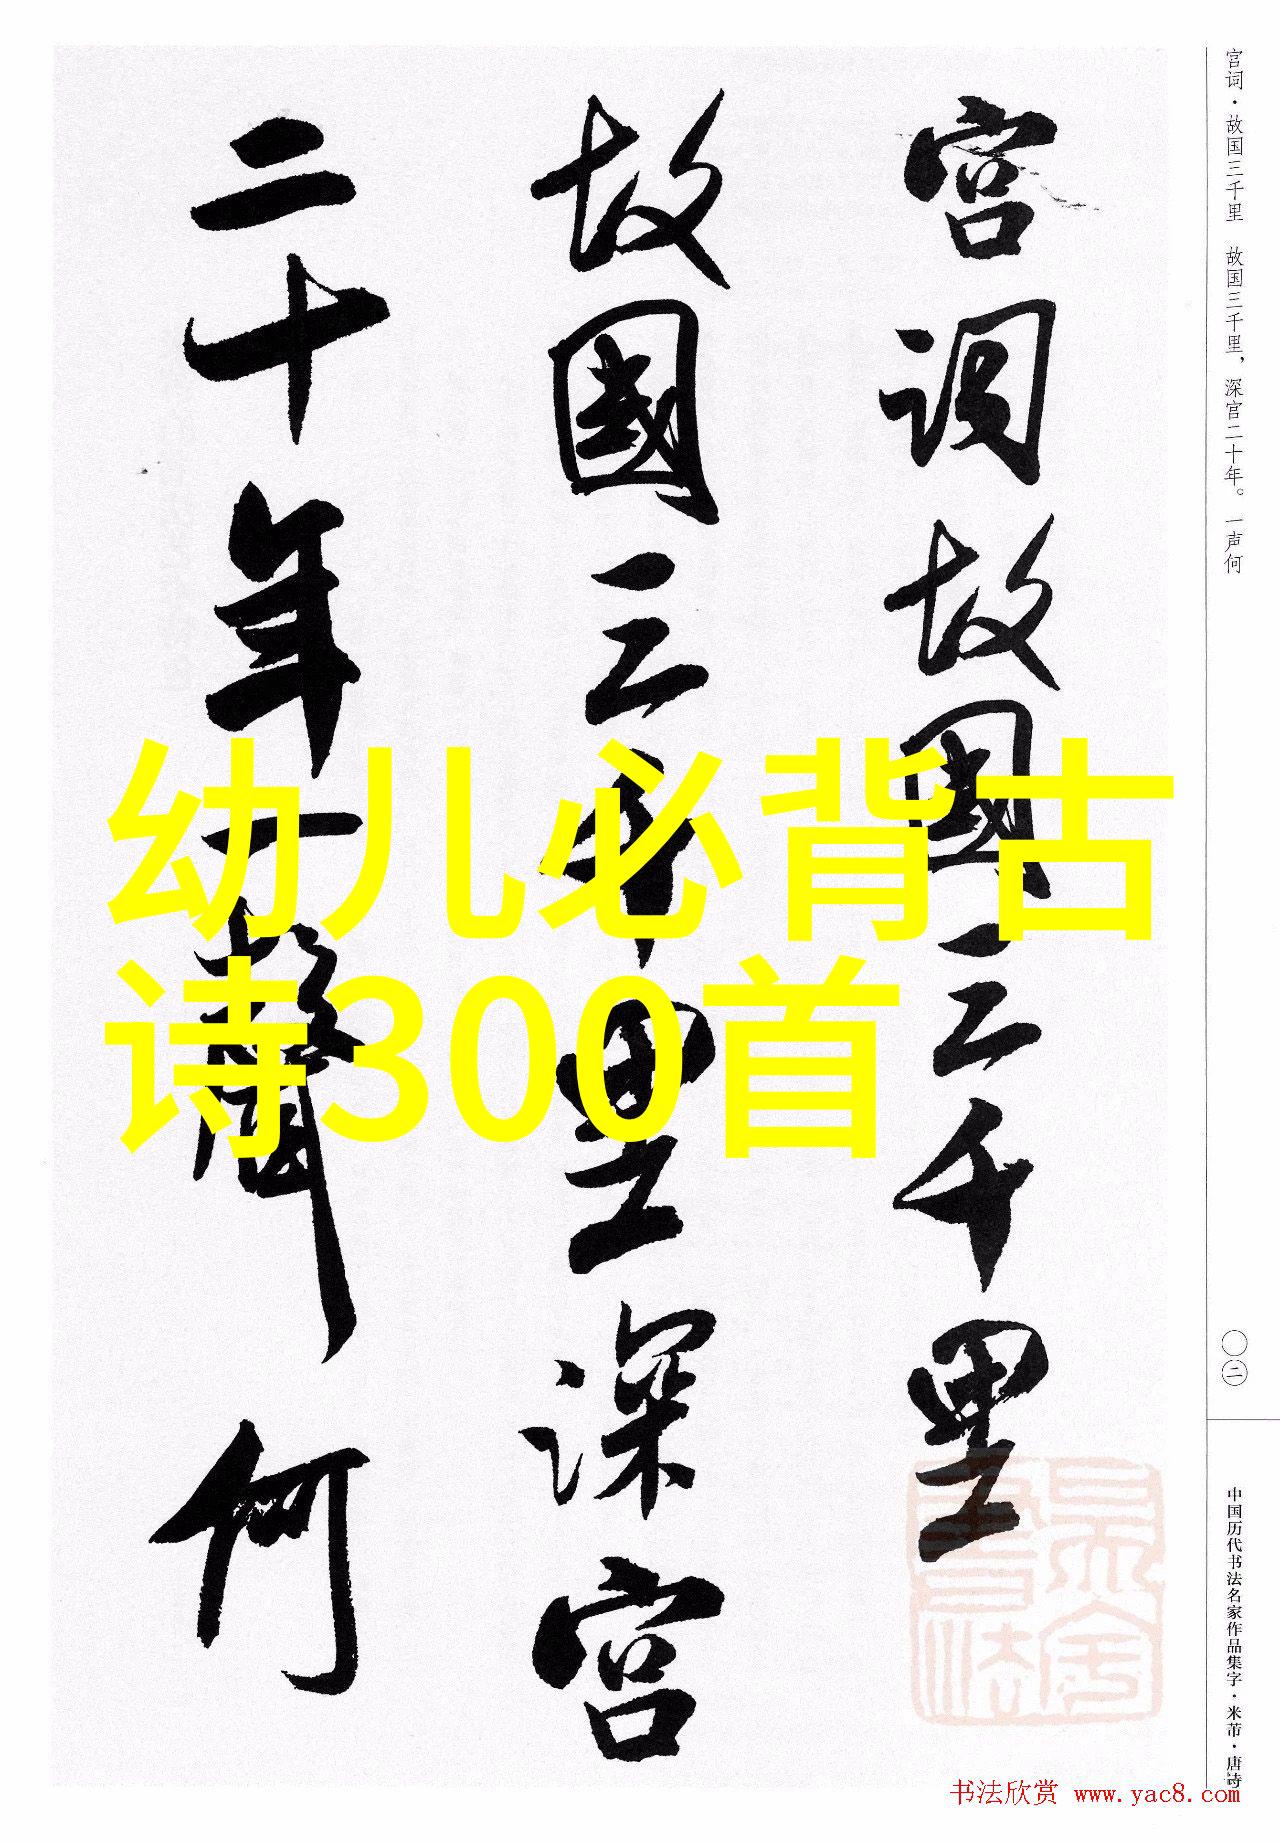 宫词故國三千里
故國三千里深宫
二十年一聲何
幼儿必背古
诗300首
宫词·故国三千里 故国三千里，深宫二十年。一声何
〇二
中国历代书法名家作品集字·米芾·唐诗
书法欣赏 www.yac8.com